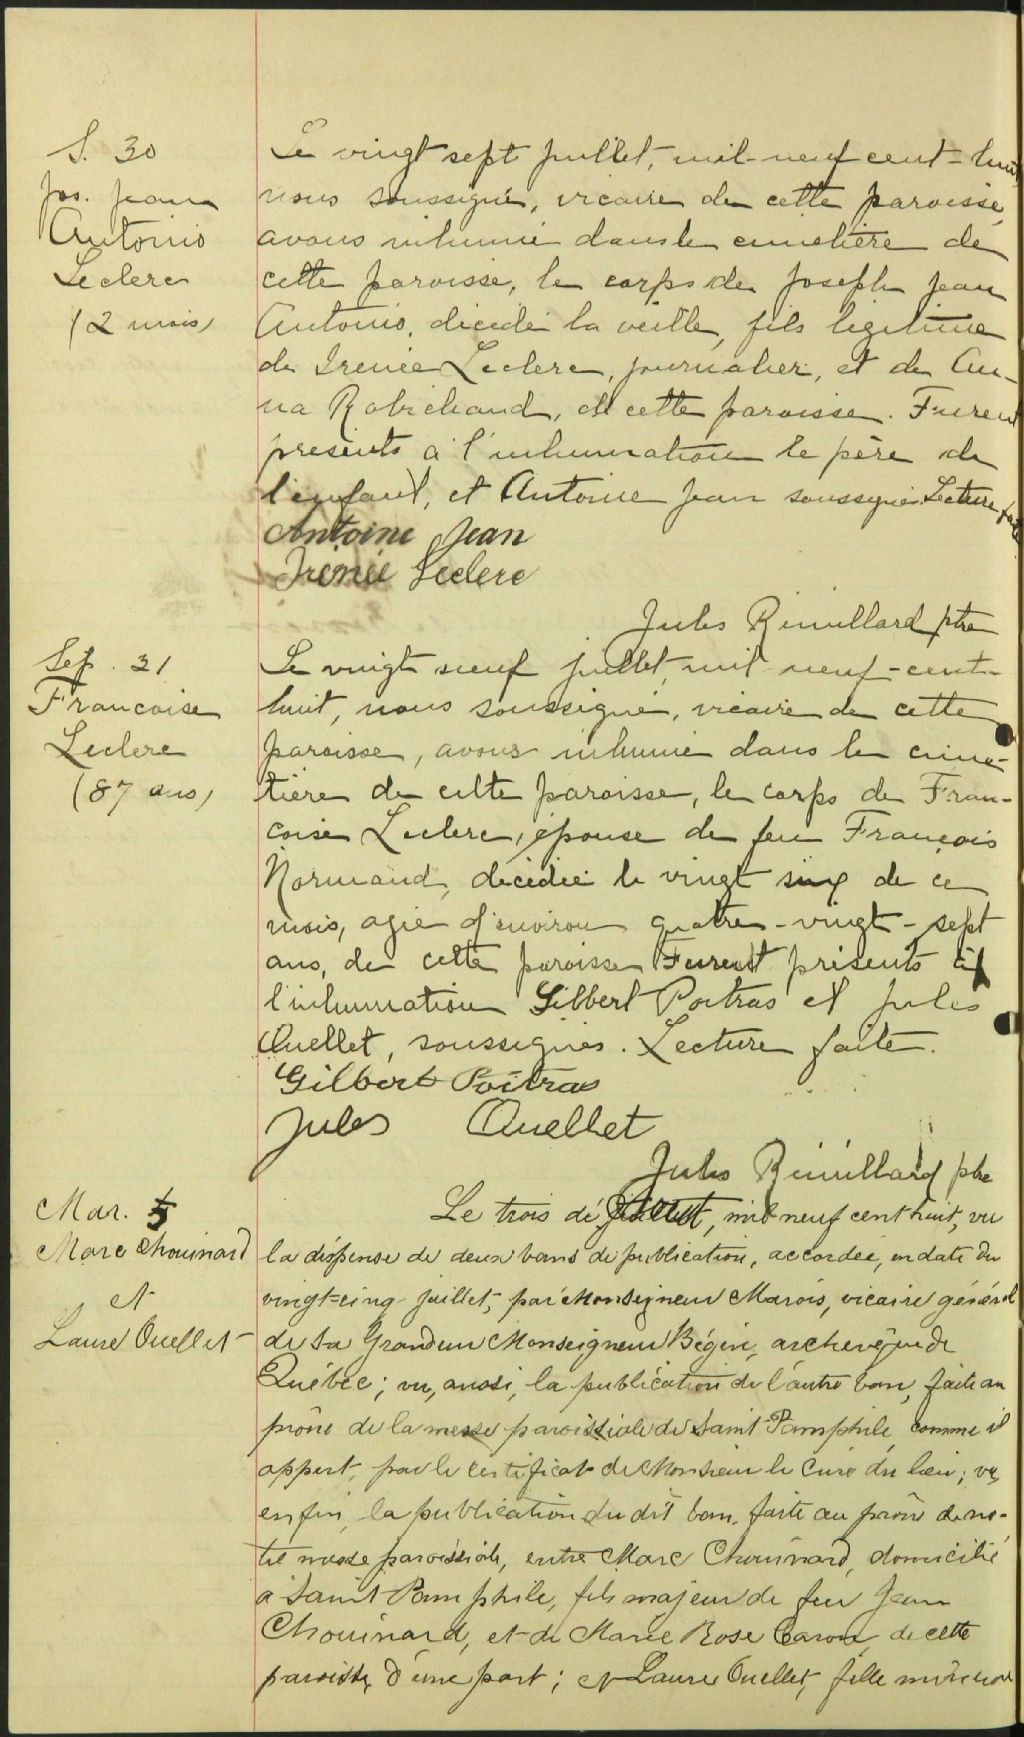 S. 30
Jos. Jean
Antonio
Leclerc
(2 mois)
Le vingt sept juillet, mil-neuf cent-huit
nous soussigné, vicaire de cette paroisse,
avons inhumé dans le cimetière de
cette paroisse, le corps de Joseph Jean
Antonio, décédé la veille, fils légitime
de Irenée Leclerc, journalier, et de An-
na Robichaud, de cette paroisse. Furent
présents à l'inhumation le père de
l'enfant, et Antoine Jean soussignés. Lecture faite
Antoine Jean
Irénée Leclerc
Jules Rimillard ptre
Sep. 31
Francoise
Leclerc
(87 ans)
Le vingt neuf juillet, mil neuf-cent-
huit, nous soussigné, vicaire de cette
paroisse, avons inhumé dans le cime-
tière de cette paroisse, le corps de Fran-
coise Leclerc, épouse de feu François
Normand, décédée le vingt six de ce
mois, agée d'environ quatre-vingt-sept
ans, de cette paroisse Furent présents à
l'inhumation Gilbert Poitras et Jules
Ouellet, soussignés. Lecture faite.
Gilbert Poitras
Jules Ouellet
Jules Rimillard ptre
Mar. 5
Marc Chouinard
et
Laure Ouellet
Le trois de août, mil neuf cent huit, vu
la dispense de deux bans de publication, accordée, en date du
vingt-cinq juillet, par Monseigneur Marois, vicaire général
de Sa Grandeur Monseigneur Bégin, archevêque de
Québec; vu, aussi, la publication de l'autre ban, faite au
prône de la messe paroissiale de Saint-Pamphile, comme il
appert, par le certificat de Monsieur le Curé du lieu; vu,
enfin, la publication du dit ban, faite au prône de no-
tre messe paroissiale, entre Marc Chouinard, domicilié
à Saint Pamphile, fils majeur de feu Jean
Chouinard, et de Marie Rose Caron, de cette
paroisse, d'une part; et Laure Ouellet, fille mineure